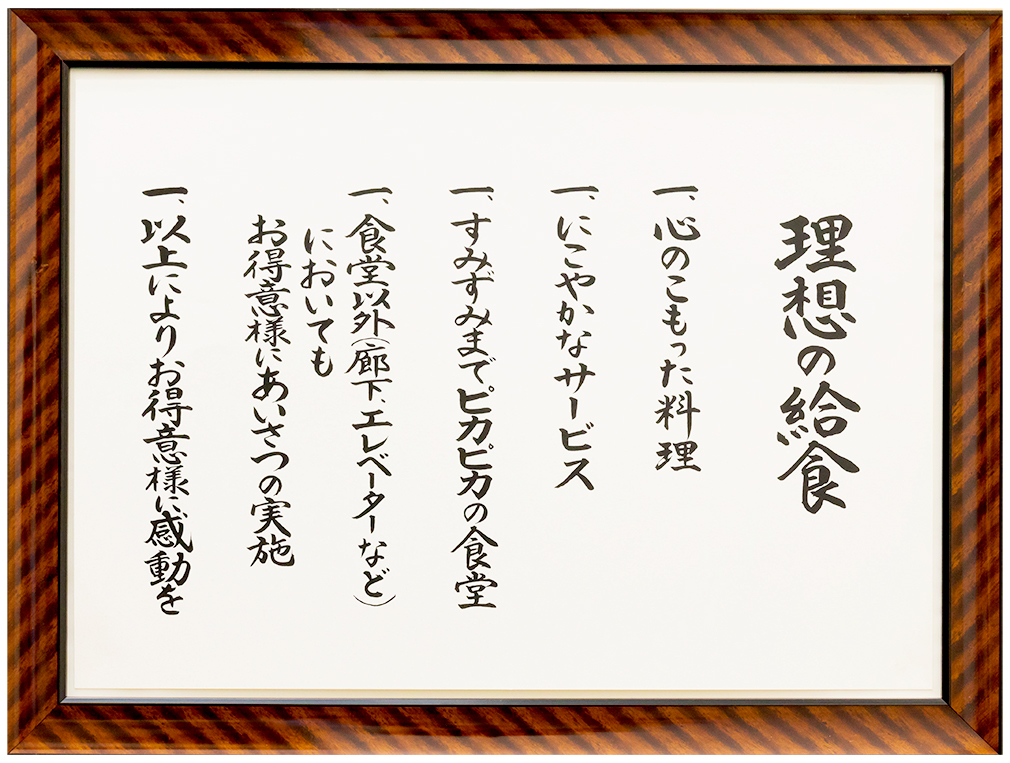 理想の給食
一、心のこもった料理
一、にこやかなサービス
一、すみずみまでピカピカの食堂
一、食堂以外(廊下、エレベーターなど)
においても
お得意様にあいさつの実施
一、以上によりお得意様に感動を